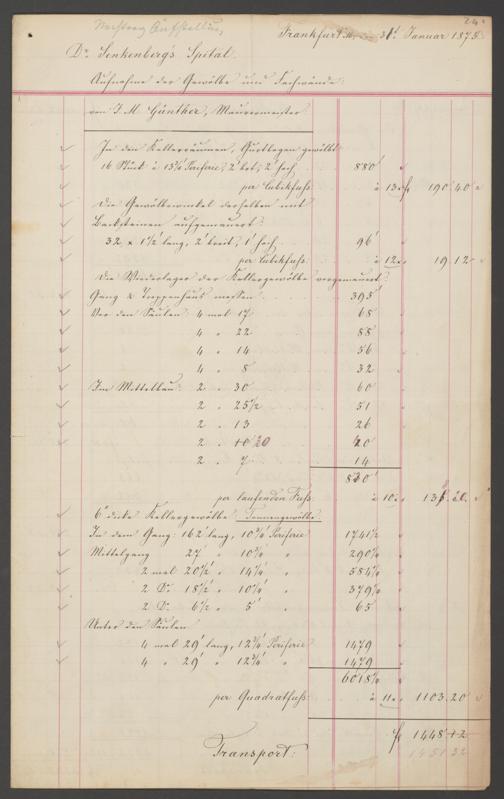 24.
Frankfurt a/M, den 31t. Januar 1875.
Dr. Senkenberg's Spital.
Aufnahme der Gewölbe und Fachwände
von J. M. Günther, Maurermeister
In den Kellerräumen, Gurtbogen gewölbt
16 Stück à 13 3/4' Periferie, 2' brt, 2' hoch 880'
per Cubikfuss à 13 190.40
Die Gewölbewinkel derselben mit
Backsteinen aufgemauert:
32 x 1 1/2' lang, 2' breit, 1' hoch 96'
per Cubikfuss à 12 19.12
Die Wiederlager der Kellergewölbe vorgemauert:
Gang & Treppenhaus messen 395'
Vor den Säulen 4 mal 17 68
4 " 22 88
4 " 14 56
4 " 8 32
Im Mittelbau 2 " 30 60
2 " 25 1/2 51
2 " 13 26
2 " 10 20 20
2 " 7 14
830'
per laufenden Fuss à 10
6" dicke Kellergewölbe Tonnengewölbe
In dem Gang 162' lang, 10 3/4' Periferie 1741 1/2
Mittelgang 27 " 10 3/4 " 290 1/4
2 mal 20 1/2' " 14 1/4' " 584 1/4
2 Do. 18 1/2' " 10 1/4' " 379 1/4
2 Do. 6 1/2 " 5' " 65
Unter den Säulen
4 mal 29' lang, 12 3/4' Periferie 1479
4 " 29' " 12 3/4' " 1479
6018 1/4
per Quadratfuss à 11 1103.20
1448 12
1451 32
Transport: